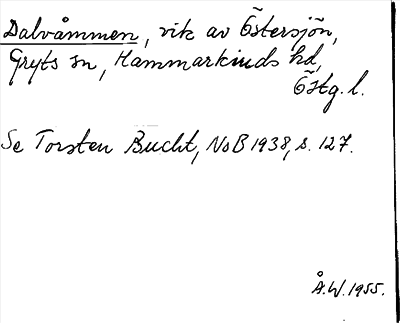 Dalvåmmen, vik av Östersjön,
Gryts sn, Hammarkinds hd,
Östg. l.
Se Torsten Bucht, NoB 1938, s. 127.
Å.W. 1955.